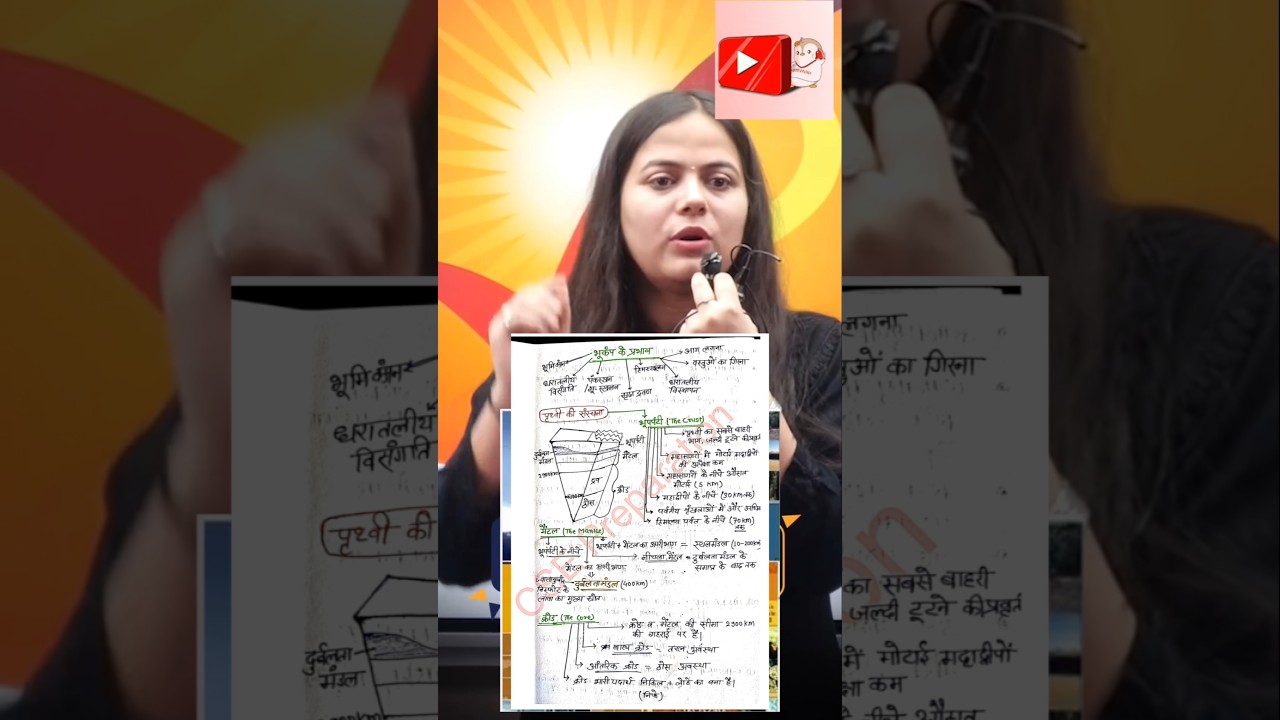 भूकंप के प्रभाव
आग लगना
वस्तुओं का गिरना
धरातलीय
विसंगति
धरातलीय
विस्थापन
पृथ्वी की संरचना
भूपर्पटी (The Crust)
पृथ्वी का सबसे बाहरी
भाग, जल्दी टूटने की प्रवृत
भूपर्पटी
मैंटल
दुर्बलता
मंडल
द्रव
ठोस
क्रोड
महासागरों में मोटाई महाद्वीपों
की अपेक्षा कम
महासागरों के नीचे औसत
मोटाई (5 KM)
महाद्वीपों के नीचे (30 KM तक)
पर्वतीय शृंखलाओं में और अधिक
हिमालय पर्वत के नीचे (70km)
तक
मैंटल (The Mantle)
भूपर्पटी के नीचे
भूपर्पटी + मैंटल का ऊपरी भाग = स्थलमंडल (10-200km)
निचला मैंटल = दुर्बलता मंडल के
समाप्त के बाद तक
मैंटल का ऊपरी भाग
दुर्बलतामंडल (400km)
लावा का मुख्य स्रोत
क्रोड (The Core)
क्रोड व मैंटल की सीमा 2900 KM
की गहराई पर है।
बाह्य क्रोड = तरल अवस्था
आंतरिक क्रोड = ठोस अवस्था
क्रोड भारी पदार्थ निकिल + लोहे का बना है।
(निफे)